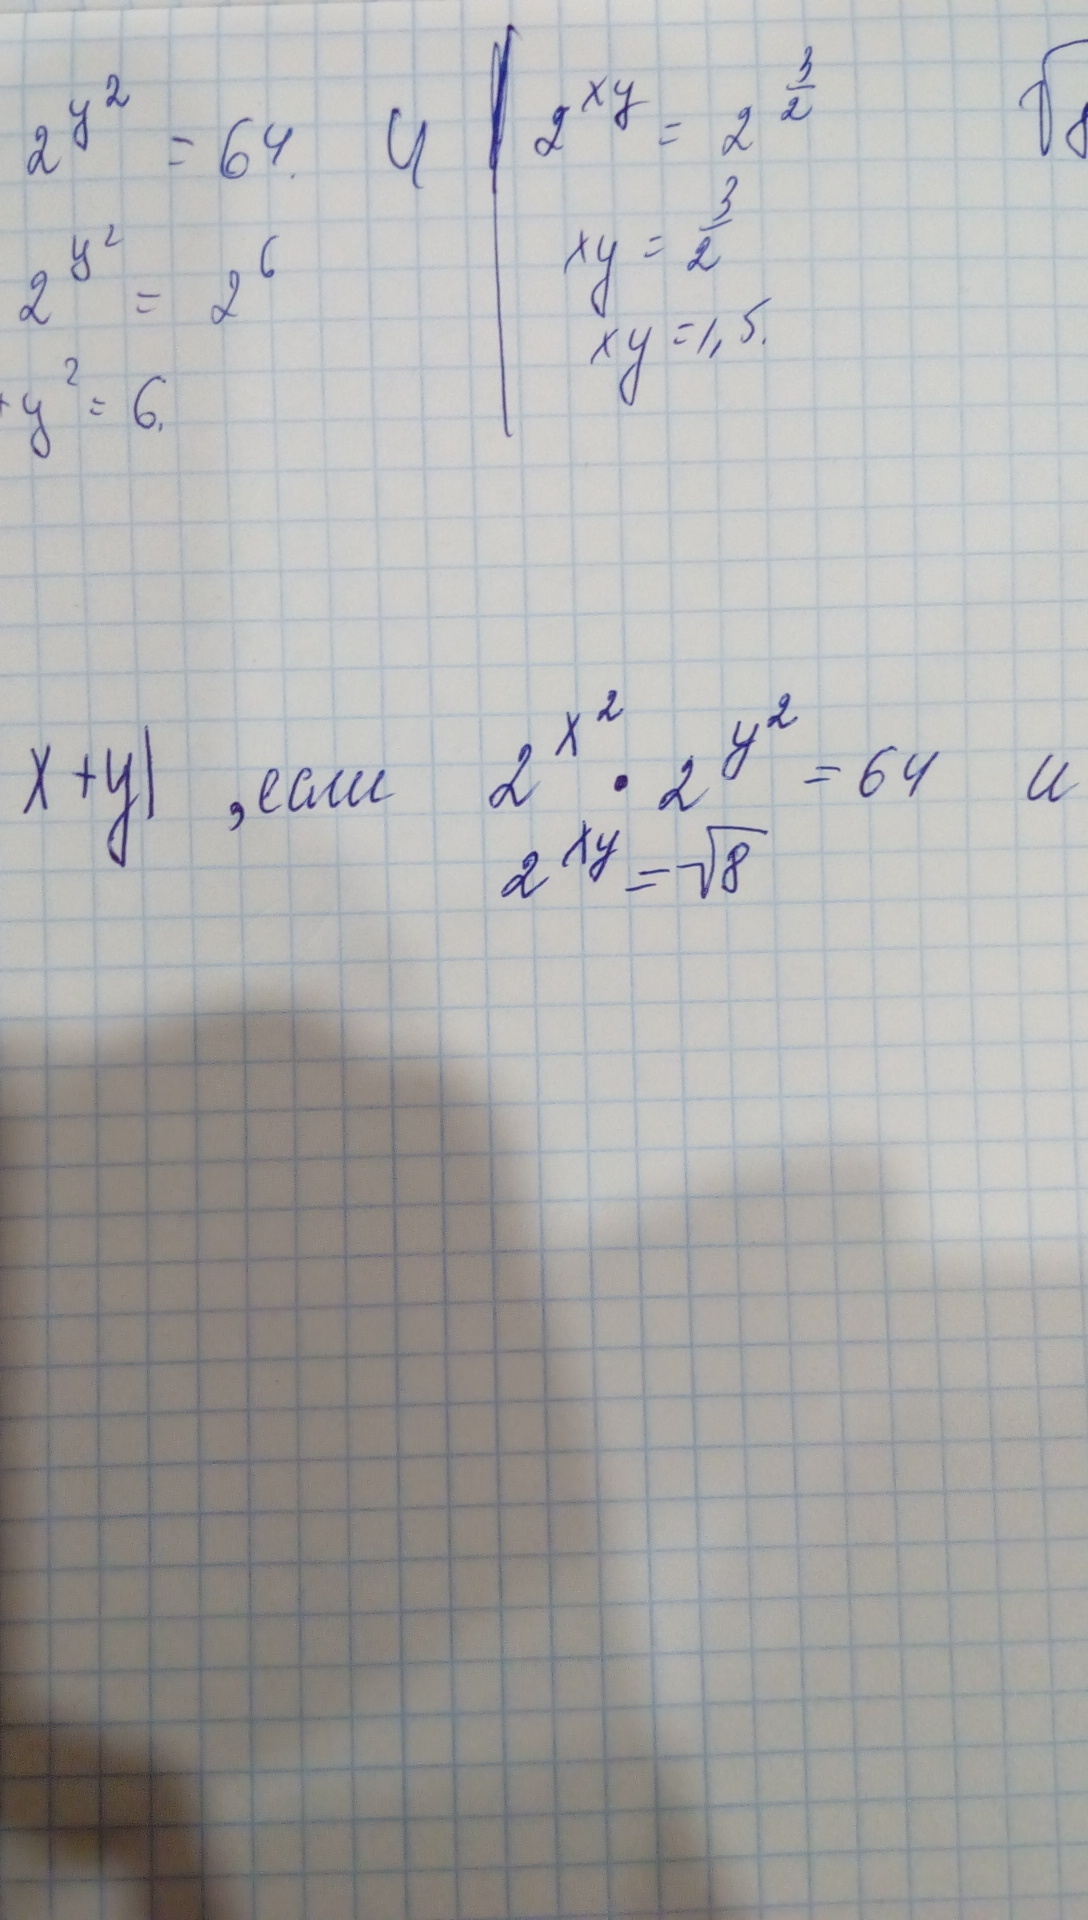 2^{y^2} = 64. И
2^{y^2} = 2^6
+y^2 = 6.
2^{xy} = 2^{\frac{3}{2}}
xy = \frac{3}{2}
xy = 1,5.
√8
x+y| , если 2^{x^2} · 2^{y^2} = 64 и
2^{xy} = √8